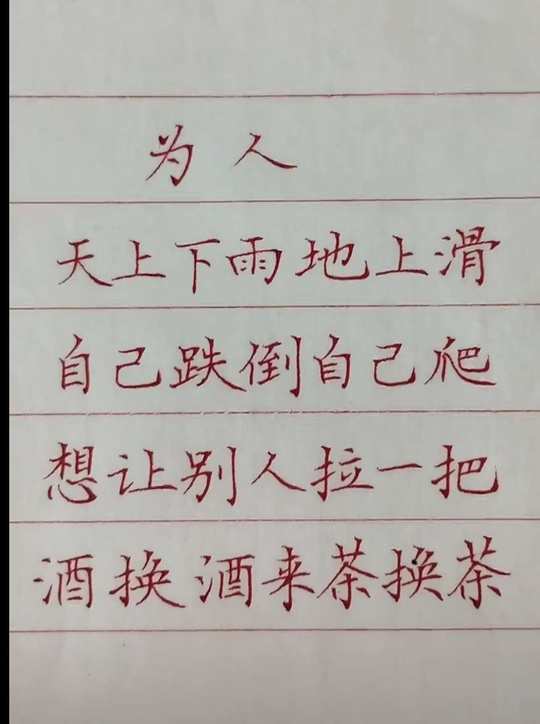 为人
天上下雨地上滑
自己跌倒自己爬
想让别人拉一把
酒换酒来茶换茶